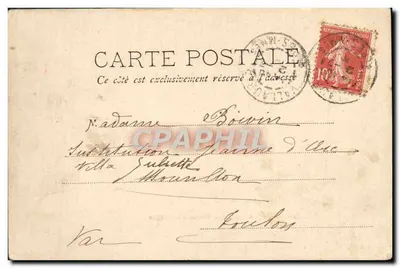 CARTE POSTALE
Ce côté est exclusivement réservé à l'adresse
Madame Boivin
Institution Jeanne d'Arc
Villa Juliette
Mourillon
Toulon
Var
CARTE-POSTALE
10
VALLAURIS